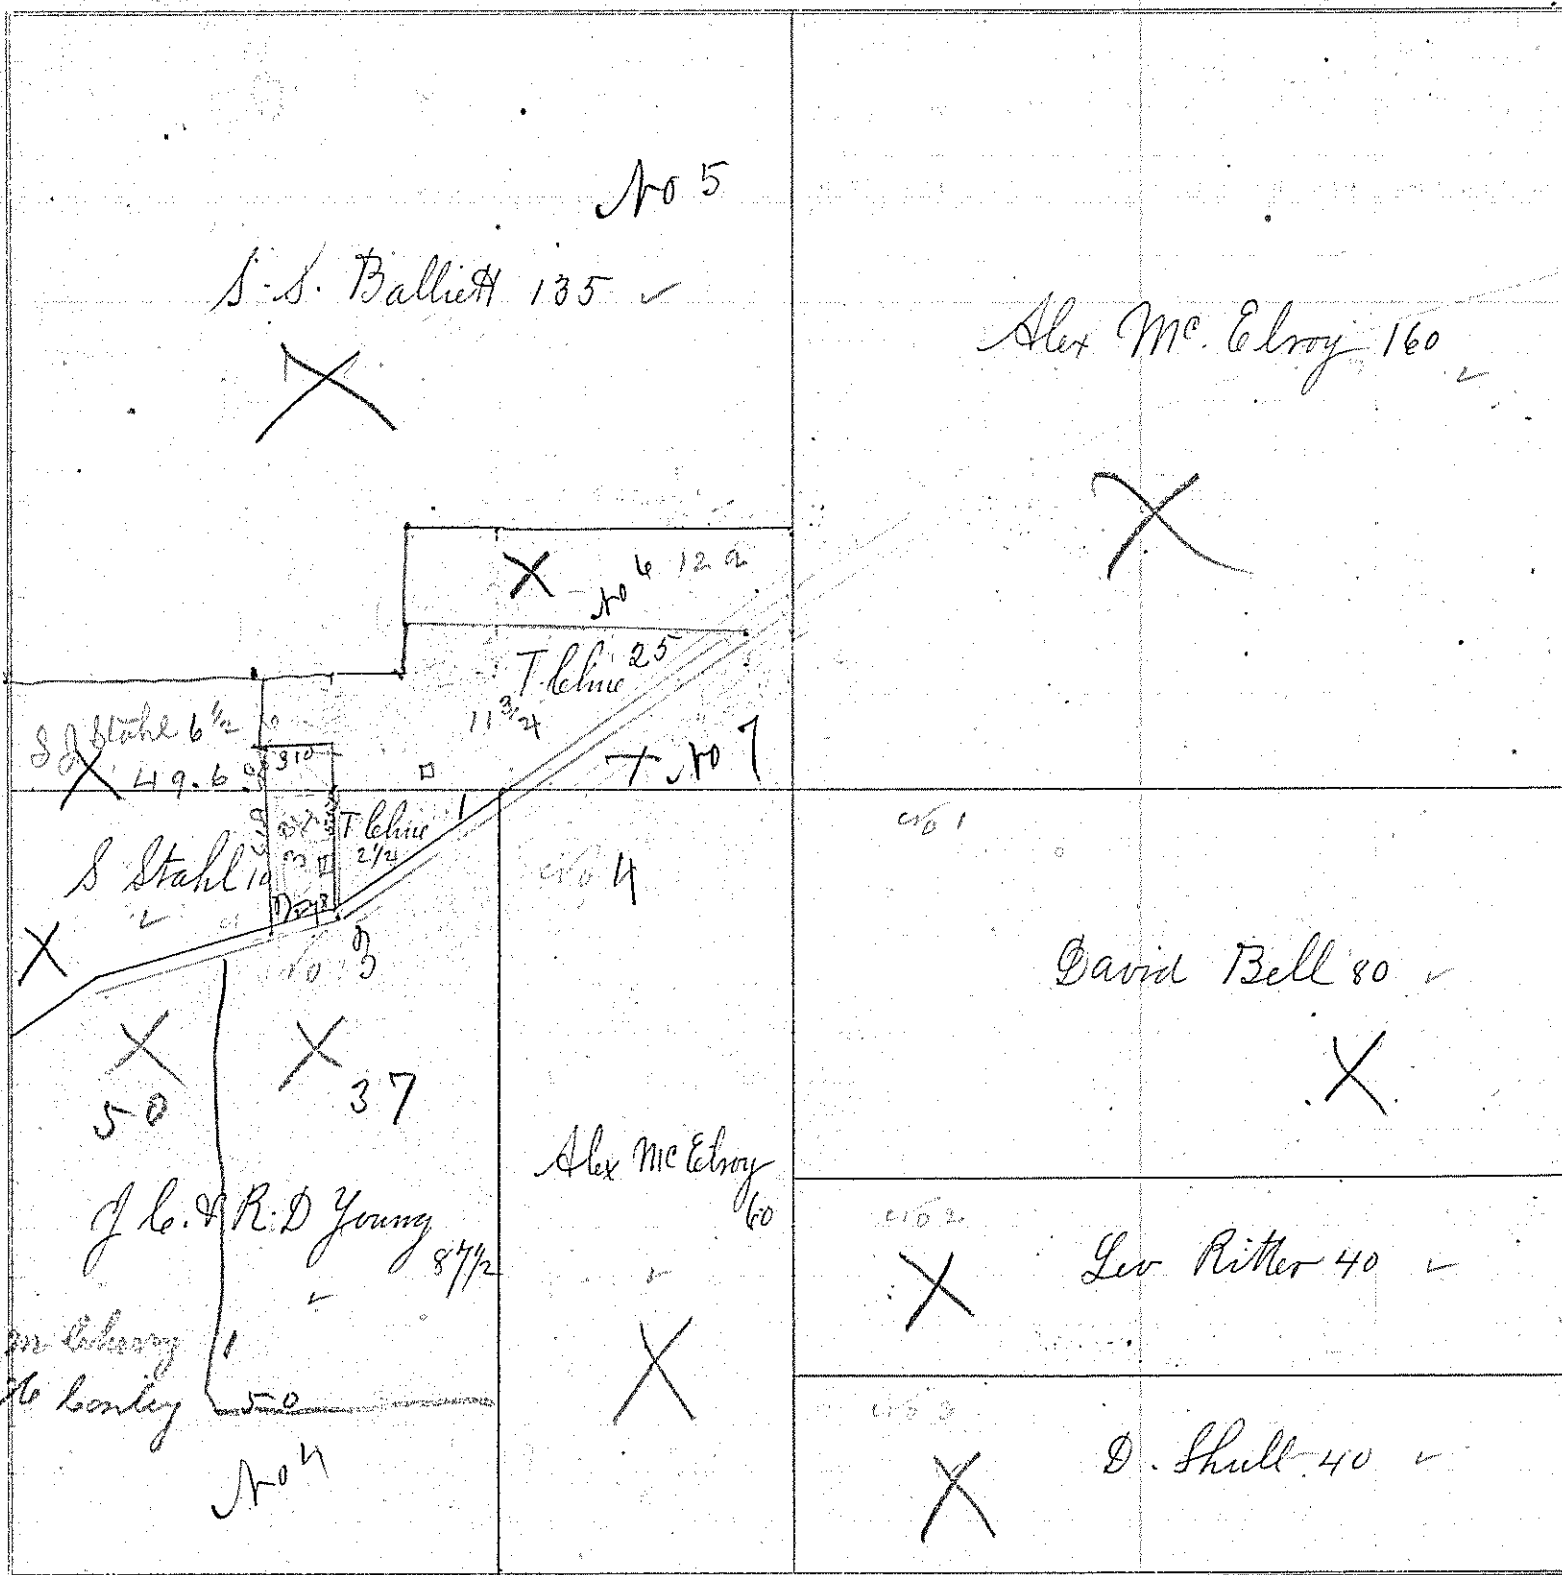 No 5
S. S. Balliett 135
Alex Mc. Elroy 160
No 6 12 a
T Cline 25
11 3/4
S J Stahl 6 1/2
49.6
310
No 7
T Cline
2 1/2
1
S Stahl 10
No 4
No 1
David Bell 80
No 3
50
37
Alex McElroy
60
J C. & R. D Young
87 1/2
No 2
Lev Ritter 40
1
Conley 50
No 3
D. Shull 40
No 4